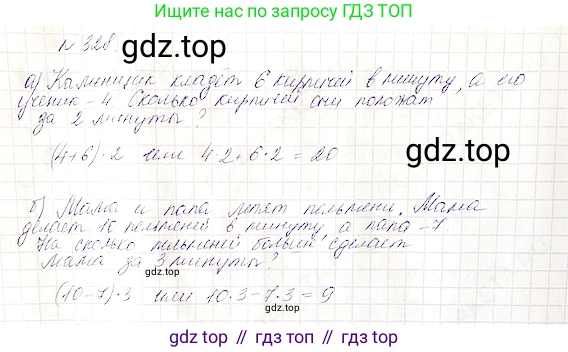 Ищите нас по запросу ГДЗ ТОП
№ 328
gdz.top
а) Каменщик кладёт 6 кирпичей в минуту, а его
ученик - 4. Сколько кирпичей они положат
за 2 минуты?
gdz.top
(4+6)·2 или 4·2+6·2=20
б) Мама и папа лепят пельмени. Мама
делает 10 пельменей в минуту, а папа - 7
На сколько пельменей больше сделает
мама за 3 минуты?
gdz.top
(10-7)·3 или 10·3-7·3=9
gdz.top
gdz.top // gdz.top // gdz.top